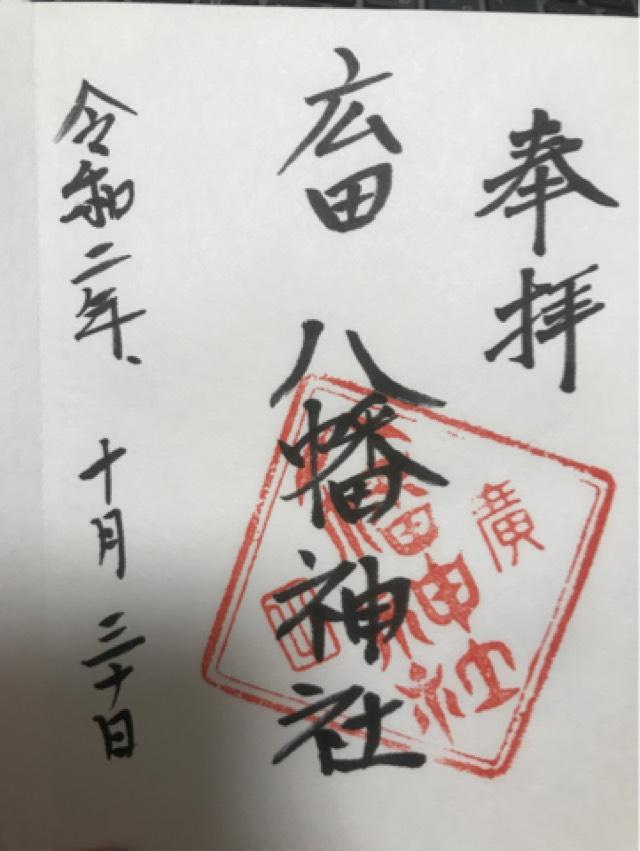 奉拝
広田 八幡神社
令和二年、十月三十日
廣
神社